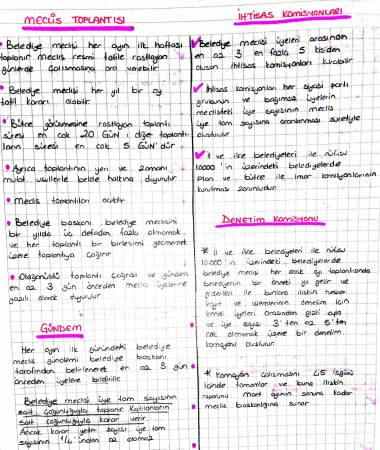 MECLİS TOPLANTISI
• Belediye meclisi her ayın ilk haftası
toplanır meclis resmi tatile rastlayan
günlerde çalışmasına ara verebilir
• Belediye meclisi her yıl bir ay
tatil kararı alabilir
• Bütçe görüşmesine rastlayan toplantı
süresi en çok 20 GÜN, diğer toplantı-
ların süresi en çok 5 GÜN'dür
• Ayrıca toplantının yeri ve zamanı
mutat usullerle belde halkına duyurulur
• Meclis toplantıları açıktır
• Belediye başkanı belediye meclisini
bir yılda üç defadan fazla olmamak
ve her toplantı bir birleşimi geçmemek
üzere toplantıya çağırır
• Olağanüstü toplantı çağrısı ve gündem
en az 3 gün önceden meclis üyelerine
yazılı olarak duyurulur
GÜNDEM
Her ayın ilk günündeki belediye
meclis gündemi belediye başkanı
tarafından belirlenerek en az 3 gün
önceden üyelere bildirilir
Belediye meclisi üye tam sayısının
salt çoğunluğuyla toplanır katılanların
salt çoğunluğuyla karar verir
Ancak karar yeter sayısı üye tam
sayısının 1/4'ünden az olamaz
İHTİSAS KOMİSYONLARI
✓ Belediye meclisi üyeleri arasından
en az 3 en fazla 5 kişiden
oluşan ihtisas komisyonları kurabilir
✓ İhtisas komisyonları her siyasi parti
grubunun ve bağımsız üyelerin
meclisteki üye sayısının meclis
üye tam sayısına oranlanması suretiyle
oluşturulur
✓ İl ve ilçe belediyeleri ile nüfusu
10000'in üzerindeki belediyelerde
plan ve bütçe ile imar komisyonlarının
kurulması zorunludur
DENETİM KOMİSYONU
* İl ve ilçe belediyeleri ile nüfusu
10.000'in üzerindeki belediyelerde
belediye meclisi her ocak ayı toplantısında
belediyenin bir önceki yılı gelir ve
giderleri ile bunlara ilişkin hesap
kayıt ve işlemlerinin denetimi için
kendi üyeleri arasından gizli oyla
ve üye sayısı 3'ten az 5'ten
çok olmamak üzere bir denetim
komisyonu oluşturur
* Komisyon çalışmasını 45 işgünü
içinde tamamlar ve buna ilişkin
raporunu mart ayının sonuna kadar
meclis başkanlığına sunar